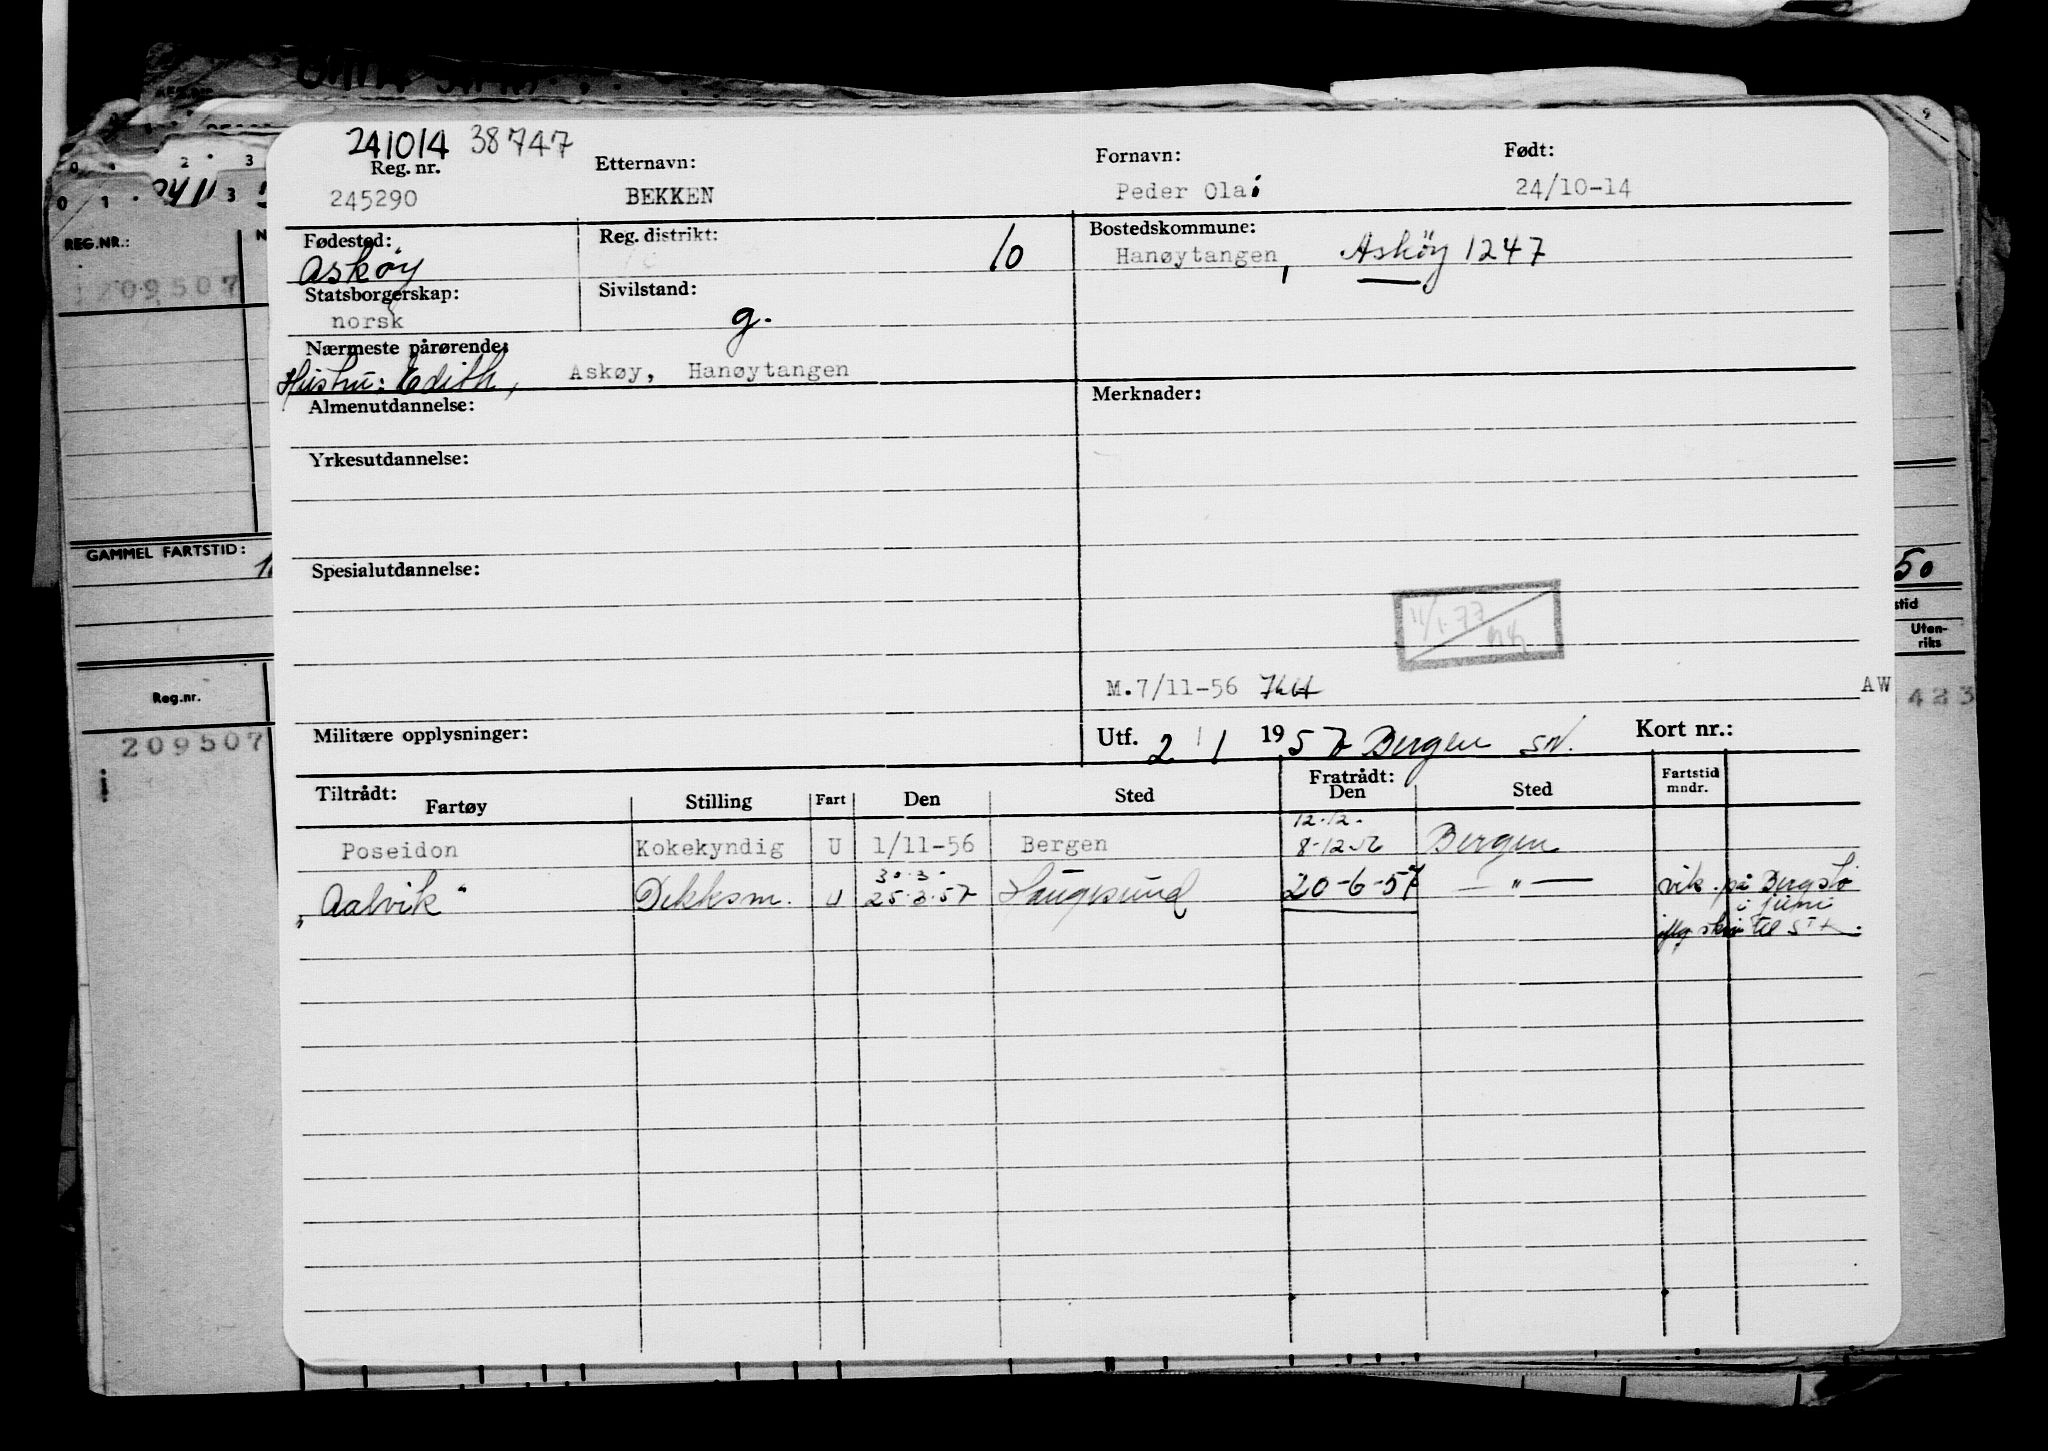 241014 38747
Reg. nr. Etternavn: Fornavn: Født:
245290 BEKKEN Peder Olai 24/10-14
Fødested: Reg. distrikt: Bostedskommune:
Askøy 10 Hanøytangen, Asköy 1247
Statsborgerskap: Sivilstand:
norsk g.
Nærmeste pårørende:
Hustru: Edith, Askøy, Hanøytangen
Almenutdannelse: Merknader:
Yrkesutdannelse:
Spesialutdannelse:
11/1-77
M.7/11-56 AW
Militære opplysninger: Utf. 2/1 1957 Bergen SN. Kort nr.:
Tiltrådt: Fartøy Stilling Fart Den Sted Fratrådt: Den Sted Fartstid mndr.
12.12.
Poseidon Kokekyndig U 1/11-56 Bergen 8-12-56 Bergen
30.3.
"Aalvik" Dekksm. U 25.3.57 Haugesund 20-6-57 — " — vik. på Bergstø
i juni
iflg skriv til STK.
0 1 2 3
0 1 2411 3
REG.NR.: N
209507
GAMMEL FARTSTID:
Reg.nr.
209507
i
9
50
stid
Uten-
riks
423